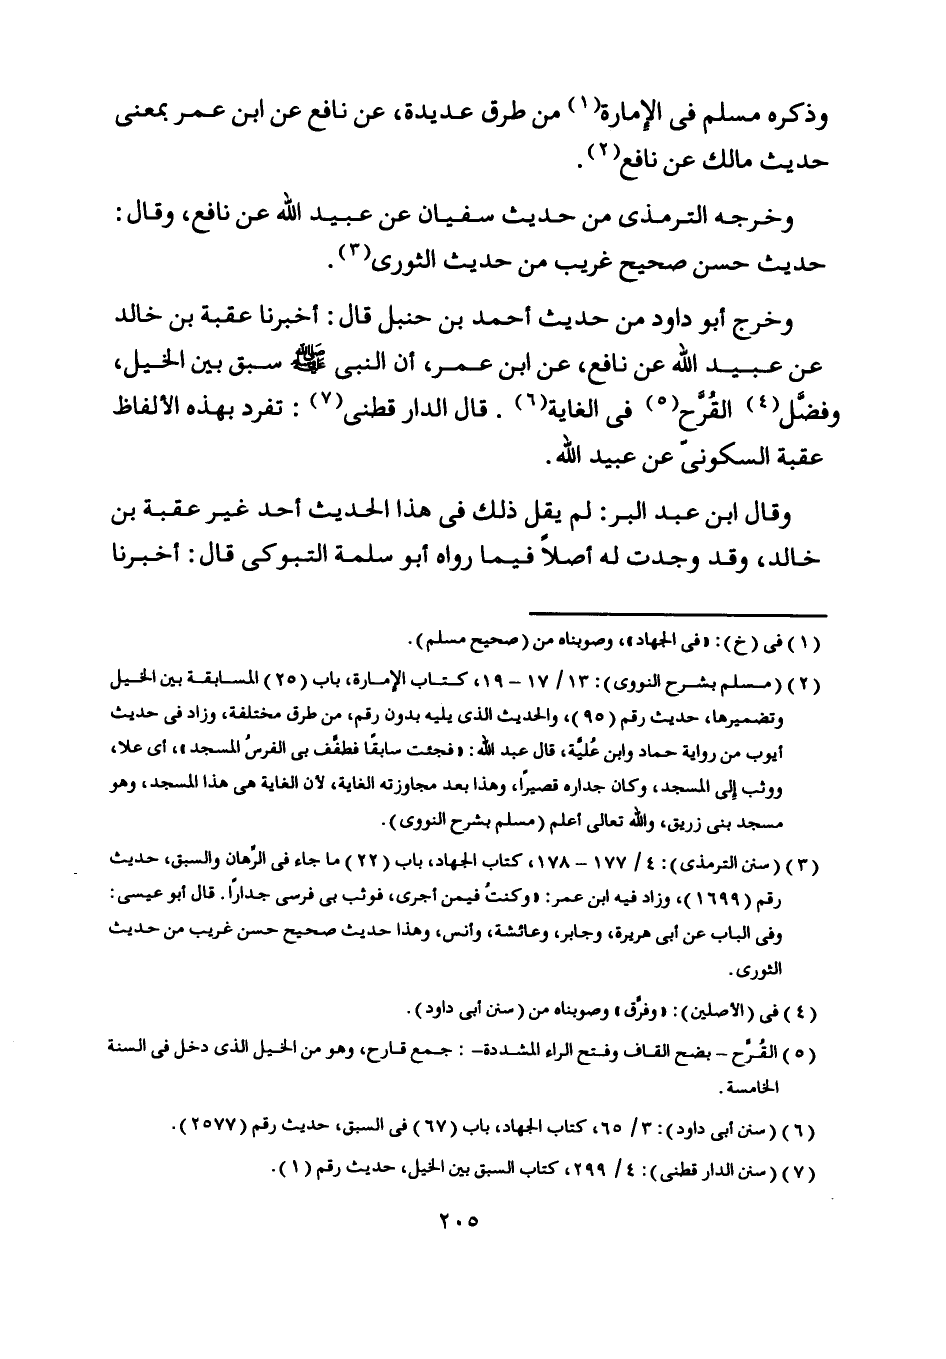 وذكره مسلم فى الإمارة(١) من طرق عديدة، عن نافع عن ابن عمر بمعنى
حديث مالك عن نافع(٢).
وخرجه الترمذى من حديث سفيان عن عبيد الله عن نافع، وقال:
حديث حسن صحيح غريب من حديث الثورى(٣).
وخرج أبو داود من حديث أحمد بن حنبل قال: أخبرنا عقبة بن خالد
عن عبيد الله عن نافع، عن ابن عمر، أن النبى ﷺ سبق بين الخيل،
وفضَّل(٤) القُرَّح(٥) فى الغاية(٦). قال الدار قطنى(٧): تفرد بهذه الألفاظ
عقبة السكونىّ عن عبيد الله.
وقال ابن عبد البر: لم يقل ذلك فى هذا الحديث أحد غير عقبة بن
خالد، وقد وجدت له أصلاً فيما رواه أبو سلمة التبوكى قال: أخبرنا
(١) فى (خ): «فى الجهاد»، وصوبناه من (صحيح مسلم).
(٢) (مسلم بشرح النووى): ١٣/ ١٧ – ١٩، كتاب الإمارة، باب (٢٥) المسابقة بين الخيل
وتضميرها، حديث رقم (٩٥)، والحديث الذى يليه بدون رقم، من طرق مختلفة، وزاد فى حديث
أيوب من رواية حماد وابن عُليَّة، قال عبد الله: «فجئت سابقًا فطفَّف بى الفرسُ المسجد»، أى علا،
ووثب إلى المسجد، وكان جداره قصيرًا، وهذا بعد مجاوزته الغاية، لأن الغاية هى هذا المسجد، وهو
مسجد بنى زريق، والله تعالى أعلم (مسلم بشرح النووى).
(٣) (سنن الترمذى): ٤/ ١٧٧ – ١٧٨، كتاب الجهاد، باب (٢٢) ما جاء فى الرِّهان والسبق، حديث
رقم (١٦٩٩)، وزاد فيه ابن عمر: «وكنتُ فيمن أجرى، فوثب بى فرسى جدارًا. قال أبو عيسى:
وفى الباب عن أبى هريرة، وجابر، وعائشة، وأنس، وهذا حديث صحيح حسن غريب من حديث
الثورى.
(٤) فى (الأصلين): «وفرَّق» وصوبناه من (سنن أبى داود).
(٥) القُرَّح – بضم القاف وفتح الراء المشددة– : جمع قارح، وهو من الخيل الذى دخل فى السنة
الخامسة.
(٦) (سنن أبى داود): ٣/ ٦٥، كتاب الجهاد، باب (٦٧) فى السبق، حديث رقم (٢٥٧٧).
(٧) (سنن الدار قطنى): ٤/ ٢٩٩، كتاب السبق بين الخيل، حديث رقم (١).
٢٠٥